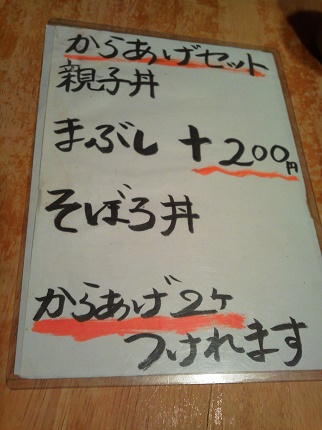 からあげセット
親子丼
まぶし +200円
そぼろ丼
からあげ2ヶ
つけれます